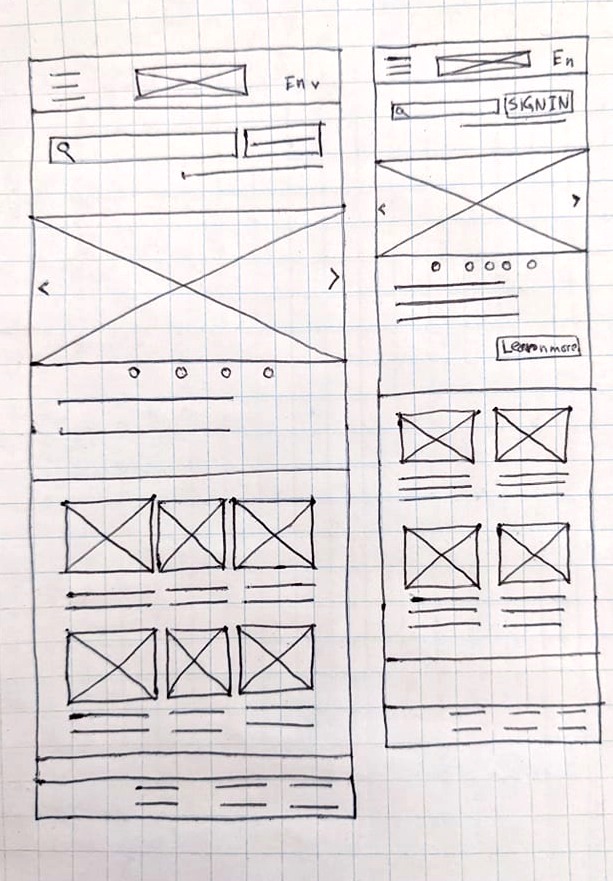 En v
En
SIGN IN
Learn more